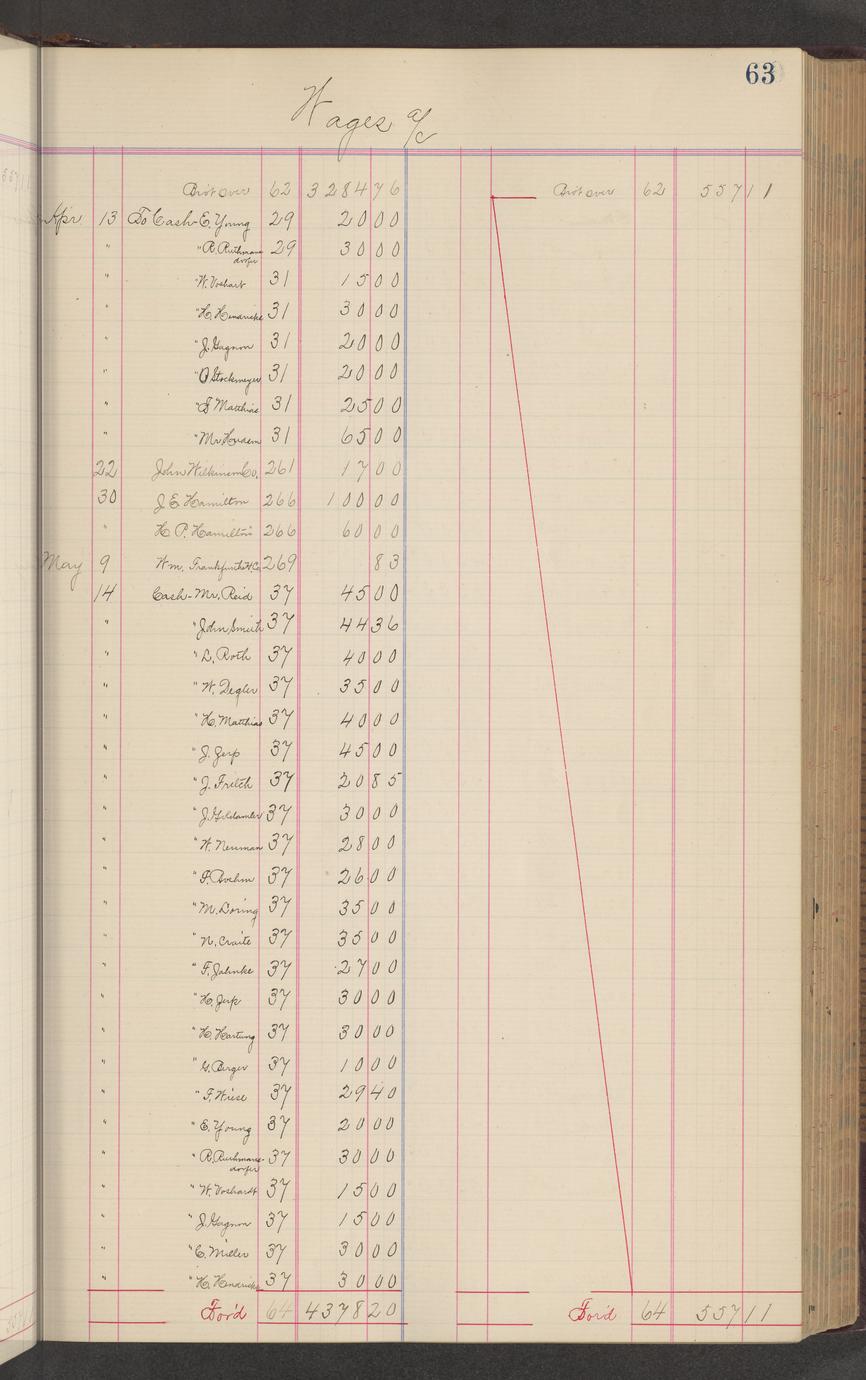 63
Wages a/c
Bro't over 62 3284 76 Bro't over 62 557 11
Apr. 13 To Cash - E. Young 29 20 00
" " R. Ruthmansdorfer 29 30 00
" " W. Voshart 31 15 00
" " H. Hendricks 31 30 00
" " J. Gagnon 31 20 00
" " O Stockmeyer 31 20 00
" " F Matthias 31 25 00
" " Mr. 31 65 00
22 John Wilkinson Co. 261 17 00
30 J E Hamilton 266 100 00
" H. P. Hamilton 266 60 00
May 9 Wm. Frankfurth H Co 269 83
14 Cash - Mr. Reid 37 45 00
" " John Smith 37 44 36
" " L. Roth 37 40 00
" " W. Degler 37 35 00
" " H. Matthias 37 40 00
" " J. Jerp 37 45 00
" " J. Fritch 37 20 85
" " J. 37 30 00
" " W. Neuman 37 28 00
" " P. Boehm 37 26 00
" " M. Loring 37 35 00
" " N. Craite 37 35 00
" " F. Jahnke 37 27 00
" " H. Jerp 37 30 00
" " H. Hartung 37 30 00
" " G. Berger 37 10 00
" " F. Wiese 37 29 40
" " E. Young 37 20 00
" " R. Ruthmansdorfer 37 30 00
" " W. Voshardt 37 15 00
" " J. Gagnon 37 15 00
" " C. Miller 37 30 00
" " H. Hendricks 37 30 00
For'd 64 4378 20 For'd 64 557 11